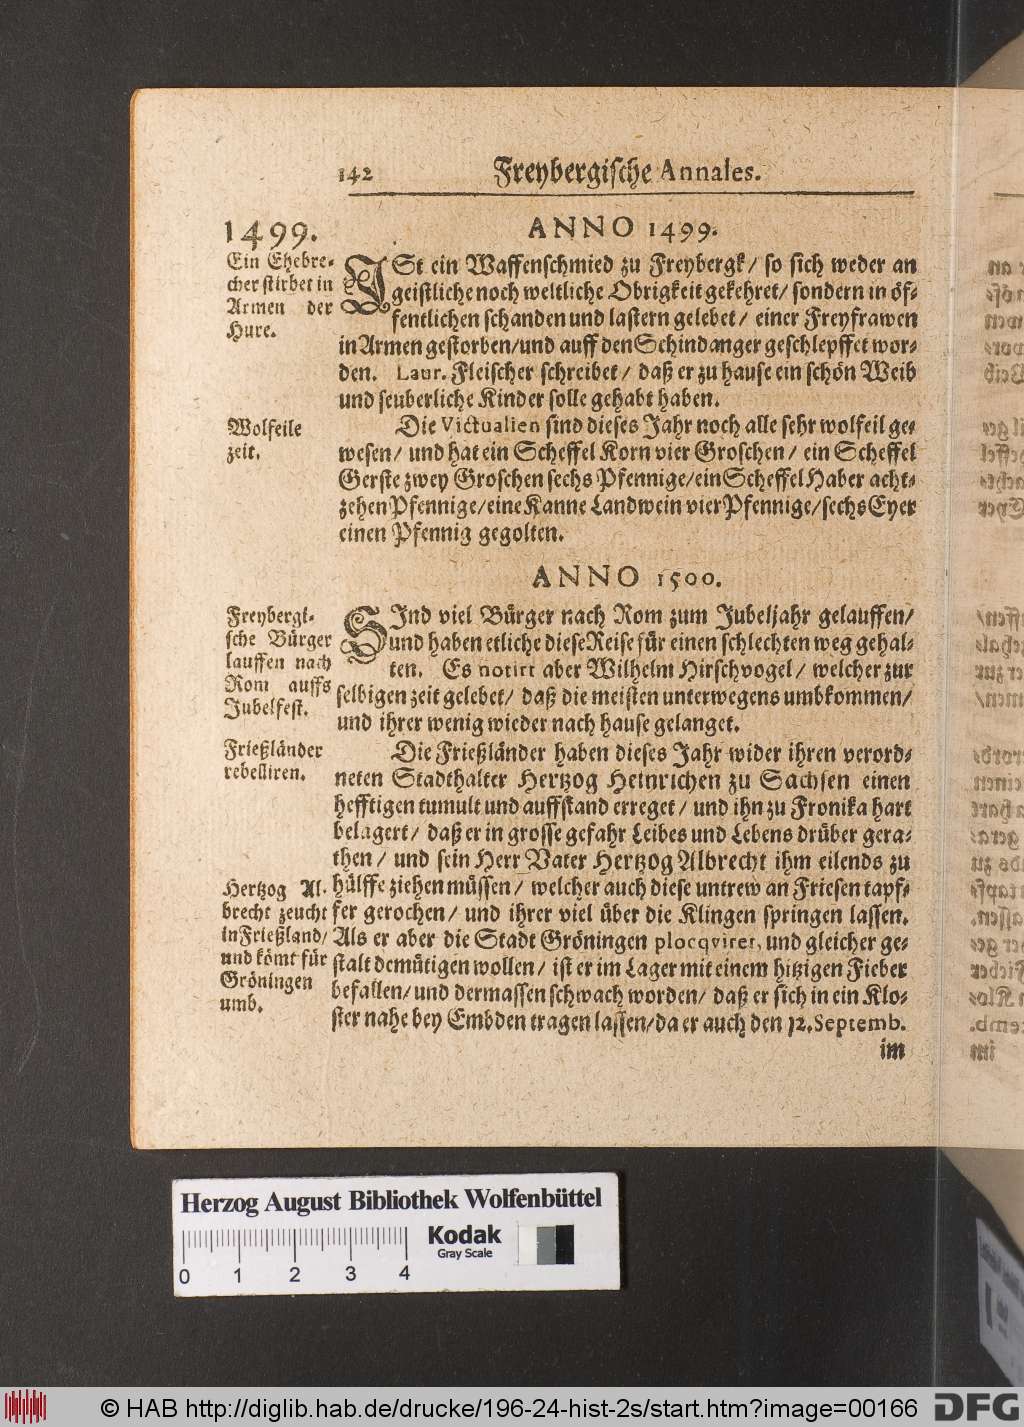 142 Freybergische Annales.
ANNO 1499.
1499.
Ein Ehebre-
cher stirbet in
Armen der
Hure.
ISt ein Waffenschmied zu Freybergk/ so sich weder an
geistliche noch weltliche Obrigkeit gekehret/ sondern in öf-
fentlichen schanden und lastern gelebet/ einer Freyfrawen
in Armen gestorben/und auff den Schindanger geschlepffet wor-
den. Laur. Fleischer schreibet/ daß er zu hause ein schön Weib
und seuberliche Kinder solle gehabt haben.
Wolfeile
zeit.
Die Victualien sind dieses Jahr noch alle sehr wolfeil ge-
wesen/ und hat ein Scheffel Korn vier Groschen/ ein Scheffel
Gerste zwey Groschen sechs Pfennige/ein Scheffel Haber acht-
zehen Pfennige/eine Kanne Landwein vier Pfennige/sechs Eyer
einen Pfennig gegolten.
ANNO 1500.
Freybergi-
sche Bürger
lauffen nach
Rom auffs
Jubelfest.
SInd viel Bürger nach Rom zum Jubeljahr gelauffen/
und haben etliche diese Reise für einen schlechten weg gehal-
ten. Es notirt aber Wilhelm Hirschvogel/ welcher zur
selbigen zeit gelebet/ daß die meisten unterwegens umbkommen/
und ihrer wenig wieder nach hause gelanget.
Frießländer
rebelliren.
Die Frießländer haben dieses Jahr wider ihren verord-
neten Stadthalter Hertzog Heinrichen zu Sachsen einen
hefftigen tumult und auffstand erreget/ und ihn zu Fronika hart
belagert/ daß er in grosse gefahr Leibes und Lebens drüber gera-
then/ und sein Herr Vater Hertzog Albrecht ihm eilends zu
hülffe ziehen müssen/ welcher auch diese untrew an Friesen tapf-
fer gerochen/ und ihrer viel über die Klingen springen lassen.
Als er aber die Stadt Gröningen plocqviret, und gleicher ge-
stalt demütigen wollen/ ist er im Lager mit einem hitzigen Fieber
befallen/ und dermassen schwach worden/ daß er sich in ein Klo-
ster nahe bey Embden tragen lassen/da er auch den 12. Septemb.
Hertzog Al-
brecht zeucht
in Frießland/
und kömt für
Gröningen
umb.
im
Herzog August Bibliothek Wolfenbüttel
Kodak
Gray Scale
0 1 2 3 4
© HAB http://diglib.hab.de/drucke/196-24-hist-2s/start.htm?image=00166
DFG